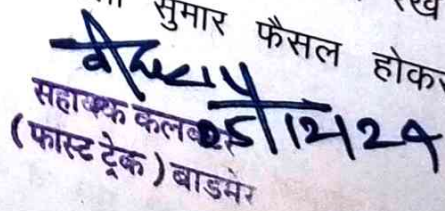 सुमार फैसल होकर
25/12/24
सहायक कलक्टर
(फास्ट ट्रेक) बाडमेर